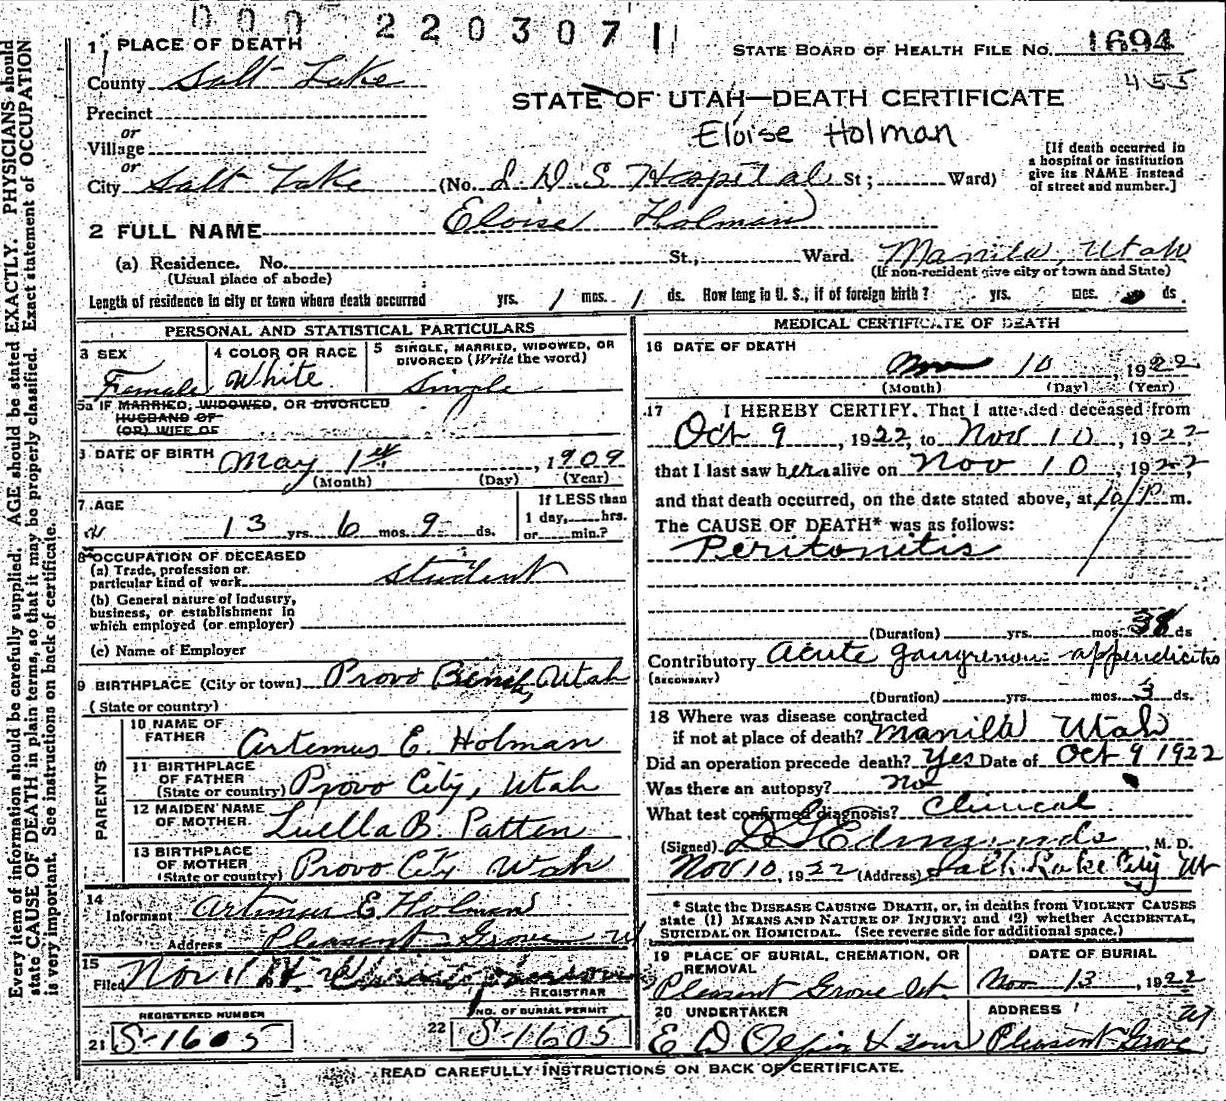 000 2203071
1 PLACE OF DEATH
STATE BOARD OF HEALTH FILE NO. 1694
County Salt Lake
455
STATE OF UTAH—DEATH CERTIFICATE
Precinct
or
Village
Eloise Holman
[If death occurred in
a hospital or institution
give its NAME instead
of street and number.]
or
City Salt Lake (No. L D S Hospital St; Ward)
2 FULL NAME Eloise Holman
(a) Residence. No. St., Ward. Manila, Utah
(Usual place of abode) (If non-resident give city or town and State)
Length of residence in city or town where death occurred yrs. 1 mos. 1 ds. How long in U. S., if of foreign birth? yrs. mos. ds.
PERSONAL AND STATISTICAL PARTICULARS
3 SEX Female
4 COLOR OR RACE White
5 SINGLE, MARRIED, WIDOWED, OR
DIVORCED (Write the word)
Single
5a IF MARRIED, WIDOWED, OR DIVORCED
HUSBAND OF
(OR) WIFE OF
DATE OF BIRTH May 1st, 1909
(Month) (Day) (Year)
7 AGE
13 yrs. 6 mos. 9 ds.
If LESS than
1 day, hrs.
or min.?
8 OCCUPATION OF DECEASED
(a) Trade, profession or
particular kind of work student
(b) General nature of industry,
business, or establishment in
which employed (or employer)
(c) Name of Employer
9 BIRTHPLACE (City or town) Provo Bench, Utah
(State or country)
PARENTS
10 NAME OF
FATHER Artemus E. Holman
11 BIRTHPLACE
OF FATHER
(State or country) Provo City, Utah
12 MAIDEN NAME
OF MOTHER Luella B. Patten
13 BIRTHPLACE
OF MOTHER
(State or country) Provo City Utah
14
Informant Artemus E Holman
Address Pleasant Grove Ut
15
Filed Nov 11
REGISTRAR
REGISTERED NUMBER
21 S-1605
NO. OF BURIAL PERMIT
22 S-1605
MEDICAL CERTIFICATE OF DEATH
16 DATE OF DEATH
Nov 10, 1922
(Month) (Day) (Year)
17 I HEREBY CERTIFY. That I attended deceased from
Oct 9, 1922, to Nov 10, 1922,
that I last saw her alive on Nov 10, 1922
and that death occurred, on the date stated above, at 10 P m.
The CAUSE OF DEATH* was as follows:
Peritonitis
(Duration) yrs. mos. 38 ds
Contributory Acute gangrenous appendicitis
(SECONDARY)
(Duration) yrs. mos. 3 ds.
18 Where was disease contracted
if not at place of death? Manila Utah
Did an operation precede death? Yes Date of Oct 9 1922
Was there an autopsy? No
What test confirmed diagnosis? Clinical
(Signed) Edmunds, M. D.
Nov 10, 1922 (Address) Salt Lake City Ut
* State the DISEASE CAUSING DEATH, or, in deaths from VIOLENT CAUSES
state (1) MEANS AND NATURE OF INJURY; and (2) whether ACCIDENTAL,
SUICIDAL OR HOMICIDAL. (See reverse side for additional space.)
19 PLACE OF BURIAL, CREMATION, OR
REMOVAL
Pleasant Grove Ut.
DATE OF BURIAL
Nov 13, 1922
20 UNDERTAKER
E D Olpin & Sons
ADDRESS
Pleasant Grove Ut
READ CAREFULLY INSTRUCTIONS ON BACK OF CERTIFICATE.
Every item of information should be carefully supplied. AGE should be stated EXACTLY. PHYSICIANS should
state CAUSE OF DEATH in plain terms, so that it may be properly classified. Exact statement of OCCUPATION
is very important. See instructions on back of certificate.